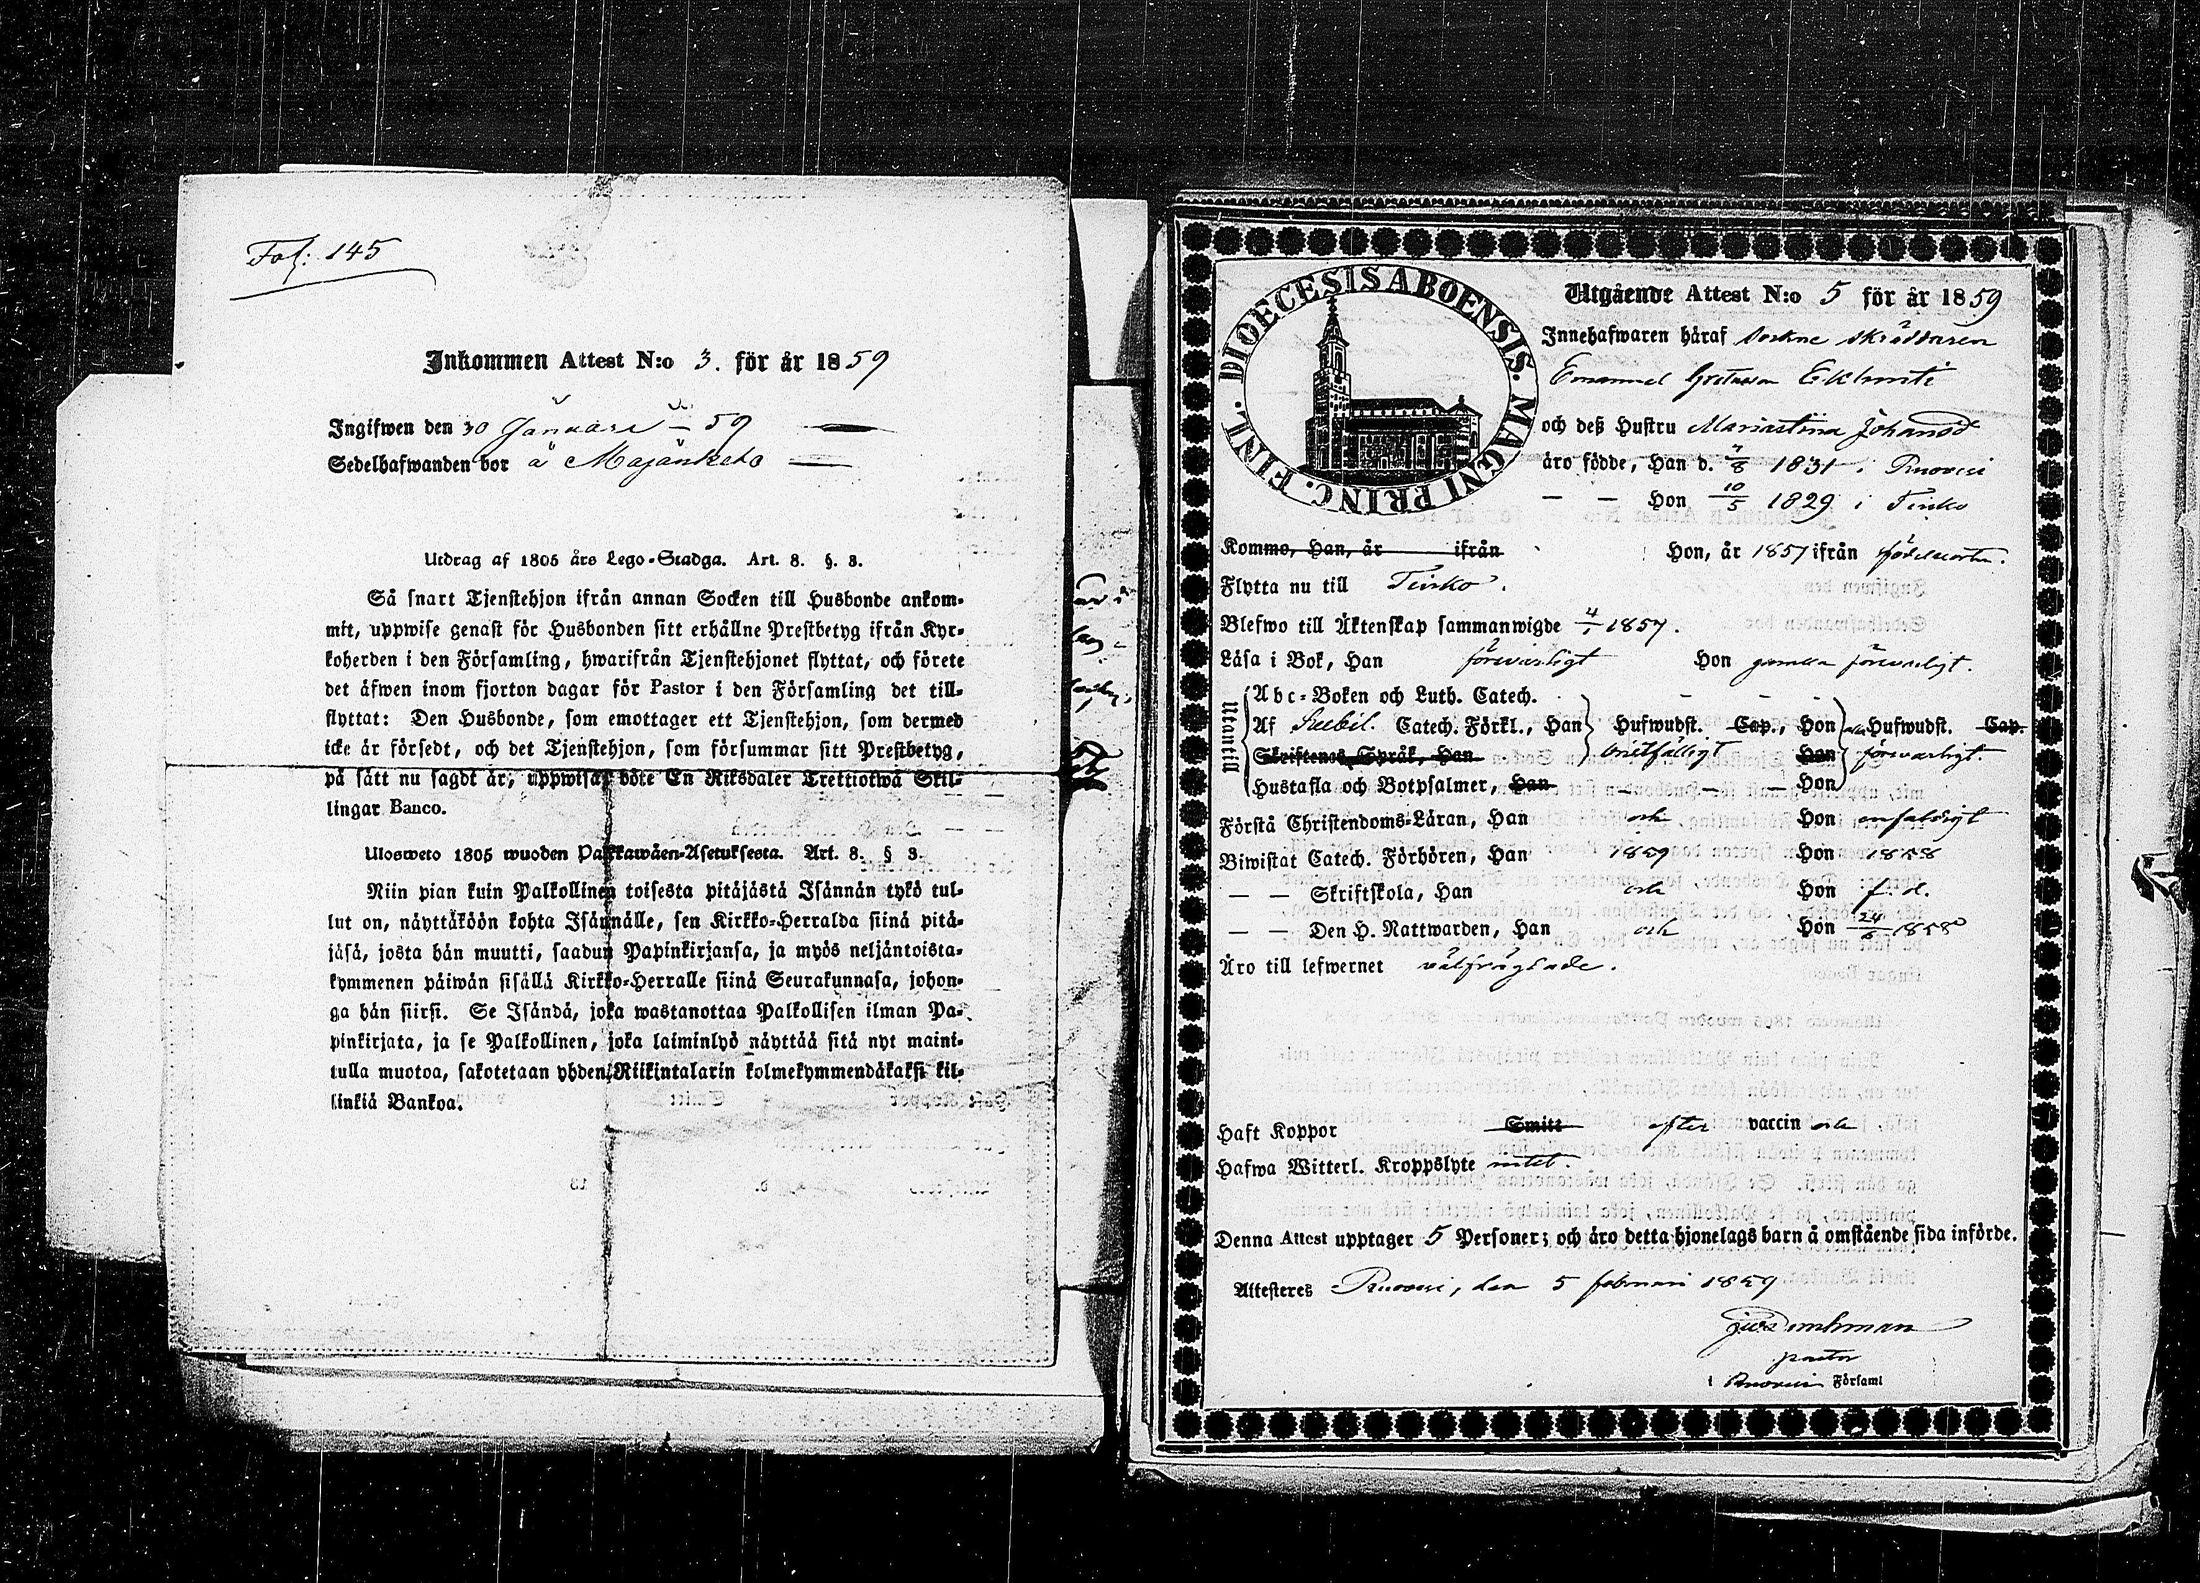 Fol: 145
Inkommen Attest N:o 3. för år 1859
Ingifwen den 30 Januari – 59
Sedelhafwanden bor å Majanketo
Utdrag af 1805 års Lego-Stadga. Art. 8. §. 3.
Så snart Tjenstehjon ifrån annan Socken till Husbonde ankom-
mit, uppwise genast för Husbonden sitt erhållne Prestbetyg ifrån Kyr-
koherden i den Församling, hwarifrån Tjenstehjonet flyttat, och förete
det äfwen inom fjorton dagar för Pastor i den Församling det till-
flyttat: Den Husbonde, som emottager ett Tjenstehjon, som dermed
icke är försedt, och det Tjenstehjon, som försummar sitt Prestbetyg,
på sätt nu sagdt är, uppwisa, böte En Riksdaler Trettiotwå Skil-
lingar Banco.
Ulosweto 1805 wuoden Palkkawäen-Asetuksesta. Art. 8. § 3.
Niin pian kuin Palkollinen toisesta pitäjästä Isännän tykö tul-
lut on, näyttäköön kohta Isännälle, sen Kirkko-Herralda siinä pitä-
jäsä, josta hän muutti, saadun Papinkirjansa, ja myös neljäntoista-
kymmenen päiwän sisällä Kirkko-Herralle siinä Seurakunnasa, johon-
ga hän siirsi. Se Isändä, joka wastanottaa Palkollisen ilman Pa-
pinkirjata, ja se Palkollinen, joka laiminlyö näyttää sitä nyt maini-
tulla muotoa, sakotetaan yhden Riikintalarin kolmekymmendäkaksi kil-
linkiä Bankoa.
DIOECESIS ABOENSIS. MAGNI PRINC. FINL.
Utgående Attest N:o 5 för år 1859
Innehafwaren häraf Sockne skräddaren
Emanuel Gretasson Eklund
och deß Hustru Mariastina Johansd
äro födde, Han d. 7/8 1831 i Ruovesi
— — Hon 10/5 1829 i Teisko
Kommo, Han, år ifrån Hon, år 1857 ifrån födelseorten.
Flytta nu till Teisko.
Blefwo till Äktenskap sammanwigde 4/1 1857.
Läsa i Bok, Han försvarligt Hon försvarligt.
Utantill
Abc-Boken och Luth. Catech.
Af Catech. Förkl., Han Hufwudst. Cap., Hon Hufwudst. Cap.
Skriftenes Språk, Han Han försvarligt.
Hustafla och Botpsalmer, Han — — Hon
Förstå Christendoms-Läran, Han och Hon enfaldigt
Biwistat Catech. Förhören, Han 1859 Hon 1858
— — Skriftskola, Han och Hon f. d.
— — Den H. Nattwarden, Han och Hon 24/6 1858
Äro till lefwernet välfrägdade.
Haft Koppor Smitt efter vaccin och
Hafwa Witterl. Kroppslyte intet.
Denna Attest upptager 5 Personer; och äro detta hjonelags barn å omstående sida införde.
Attesteres Ruovesi, den 5 februari 1859
pastor
i Ruovesi Församl